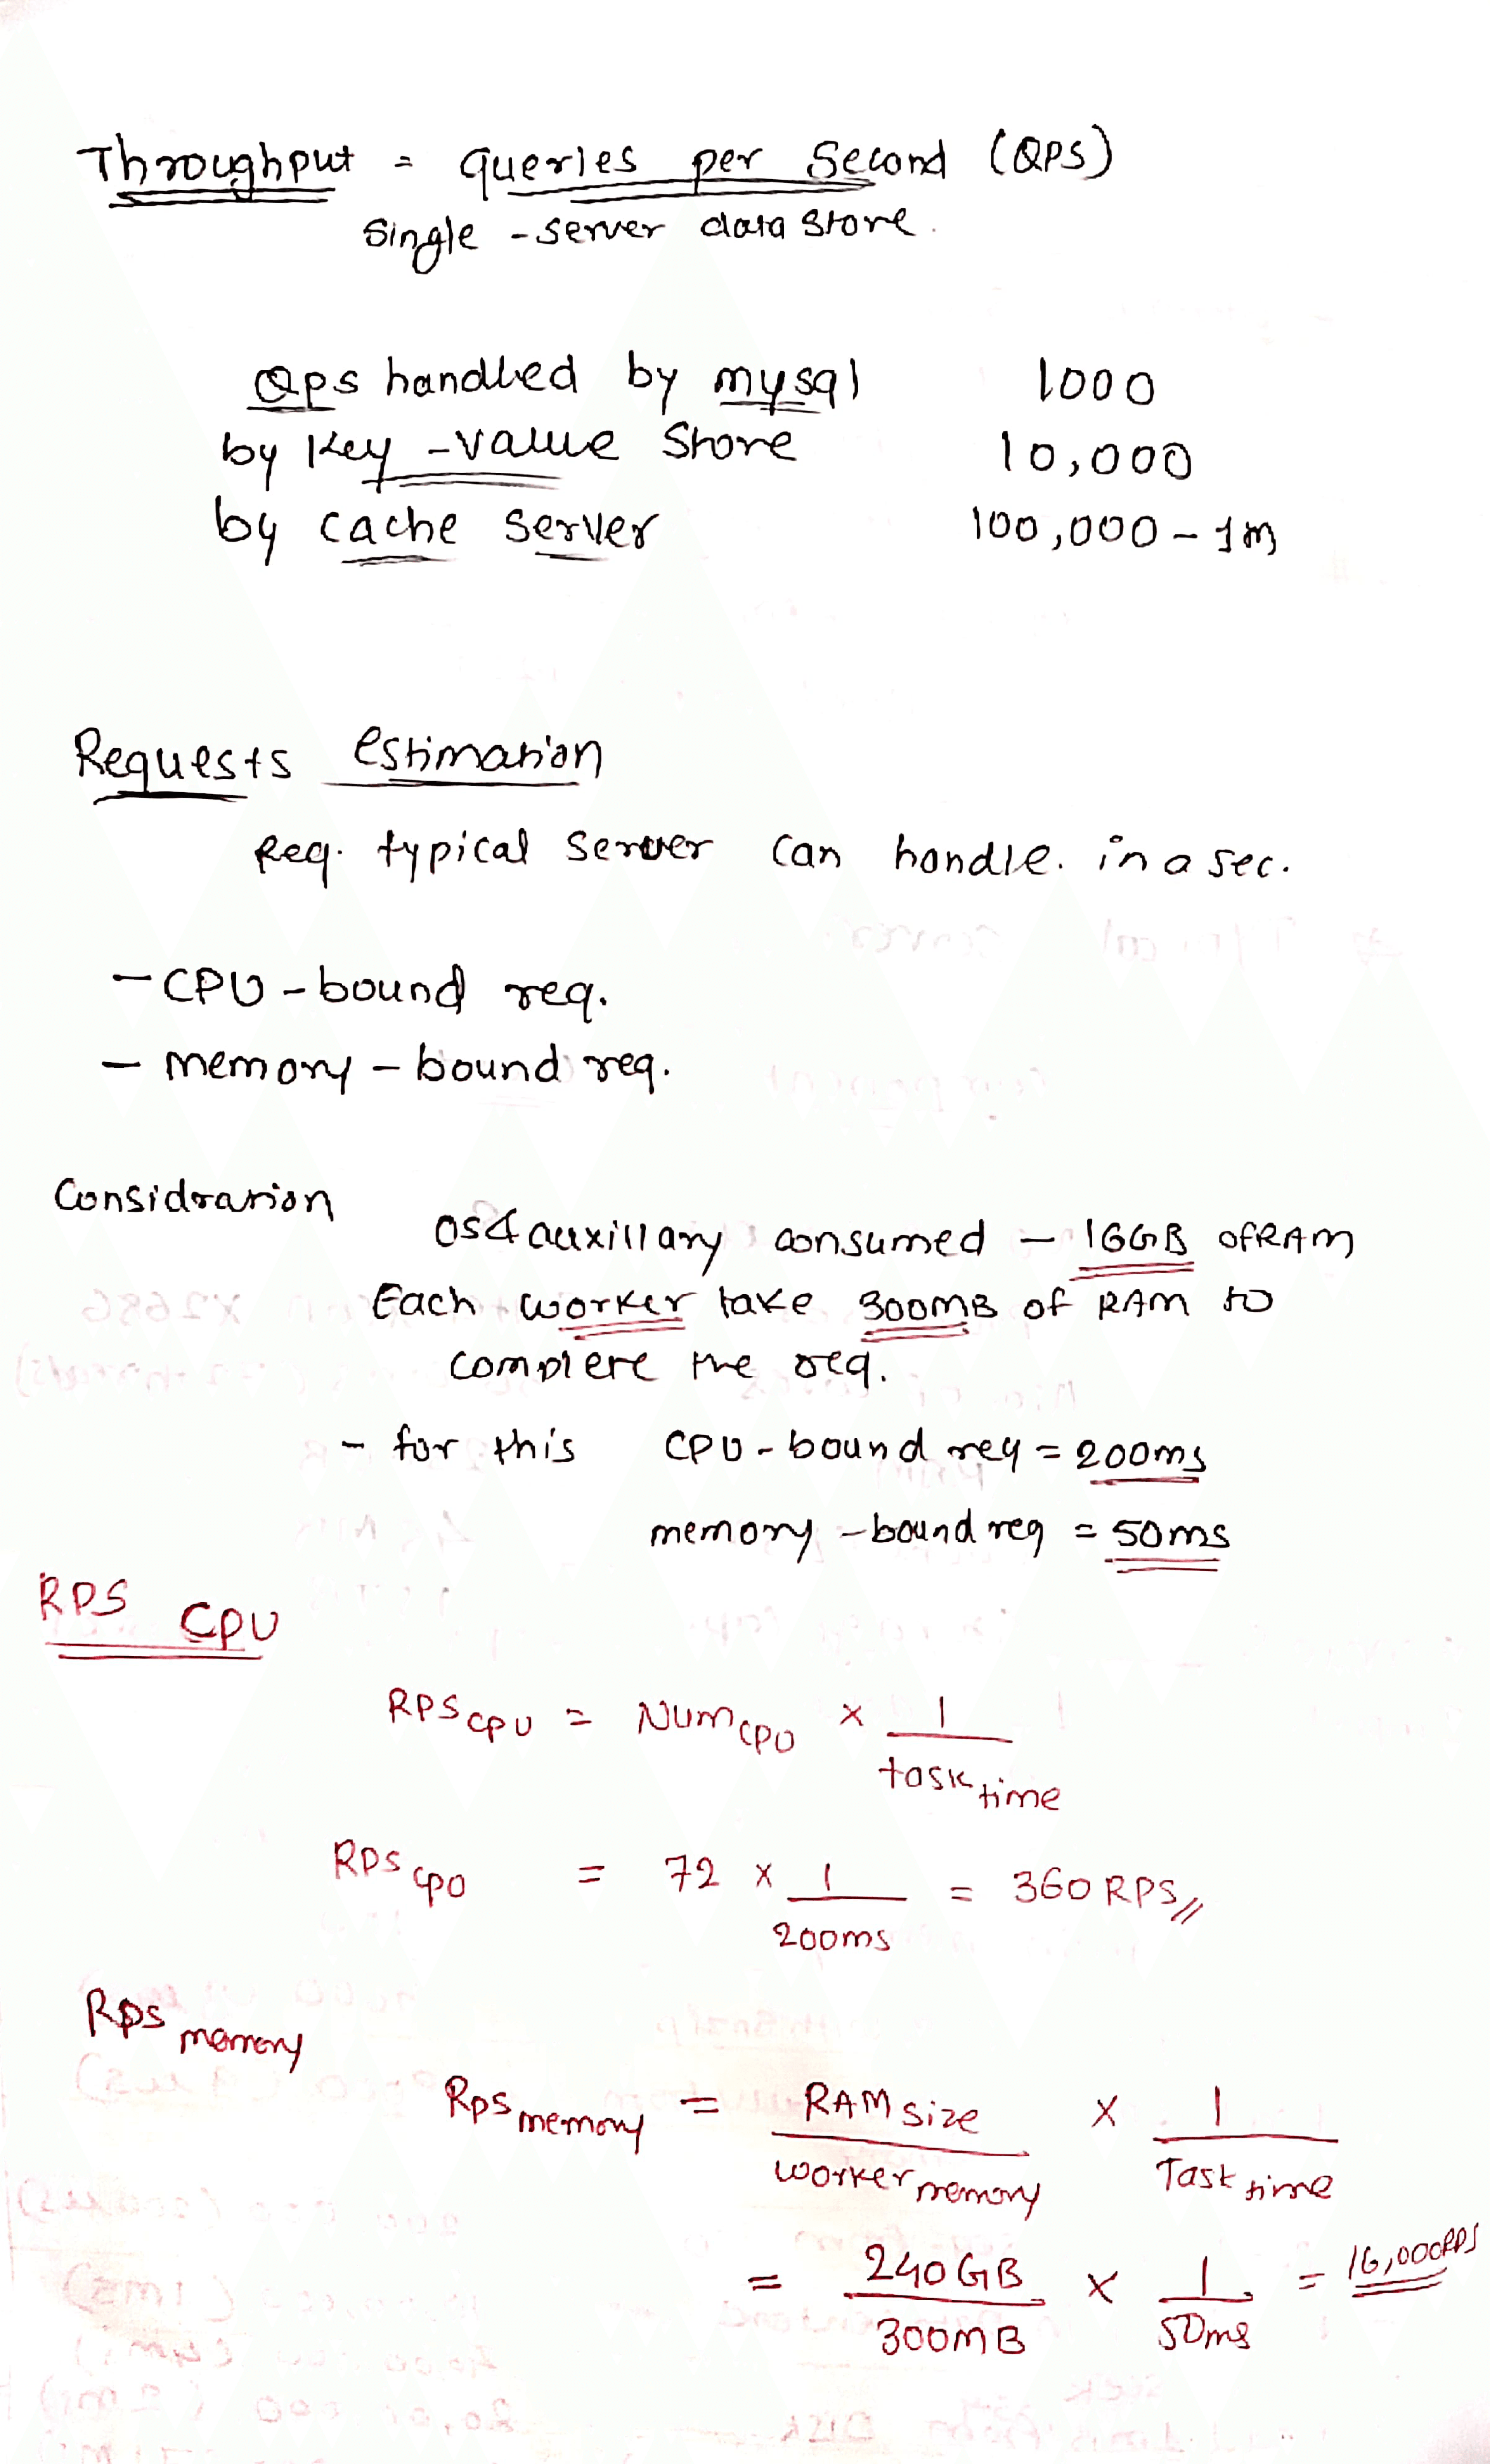 Throughput = queries per Second (QPS)
Single - server data store.
Qps handled by mysql 1000
by Key - value Store 10,000
by cache server 100,000 - 1m
Requests estimation
Req. typical server can handle. in a sec.
- CPU - bound req.
- memory - bound req.
Considration
OS & auxillary consumed - 16GB of RAM
Each worker take 300MB of RAM to
complete the req.
- for this CPU - bound req = 200ms
memory - bound req = 50ms
RPS CPU
RPS CPU = Num CPU x 1 / task time
RPS CPU = 72 x 1 / 200ms = 360 RPS //
Rps memory
Rps memory = RAM size / worker memory x 1 / Task time
= 240 GB / 300MB x 1 / 50ms = 16,000 RPS